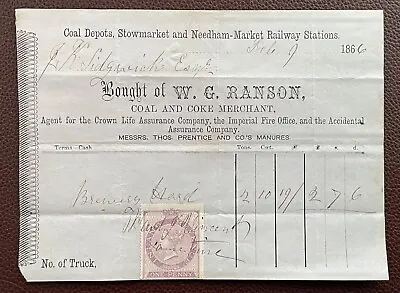 Coal Depots, Stowmarket and Needham-Market Railway Stations,
Feb 9 1866
Esqr
Bought of W. G. RANSON,
COAL AND COKE MERCHANT,
Agent for the Crown Life Assurance Company, the Imperial Fire Office, and the Accidental
Assurance Company.
MESSRS. THOS. PRENTICE AND CO.'S MANURES.
Terms—Cash Tons. Cwt. £ s. d.
Brewery Hard 2 10 19/ 2 7 6
ONE PENNY
No. of Truck,